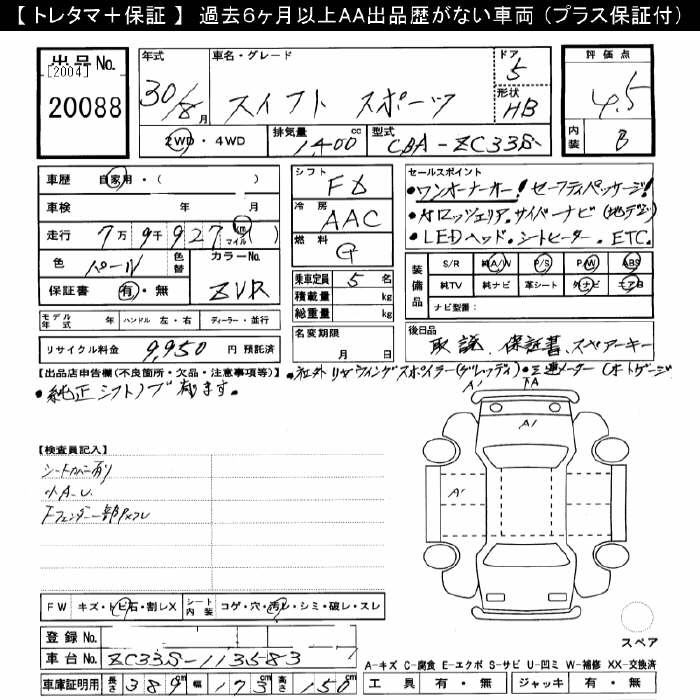 【 トレタマ＋保証 】 過去6ヶ月以上AA出品歴がない車両（プラス保証付）
出品No.
[2004]
20088
年式 車名・グレード ドア
30/8月 スイフト スポーツ 5
形状
HB
2WD・4WD 排気量 1,400 cc 型式 CBA-ZC33S
評価点
4.5
内装 B
車歴 自家用・( )
車検 年 月
走行 7万9千927 km マイル
色 パール 色替 カラーNo.
保証書 有・無 ZVR
モデル年式 年 ハンドル 左・右 ディーラー・並行
リサイクル料金 9,950 円 預託済
シフト F6
冷房 AAC
燃料 G
乗車定員 5 名
積載量 kg
総重量 kg
名変期限
月 日
セールスポイント
・ワンオーナー! セーフティパッケージ!
・カロッツェリア.サイバーナビ(地デジ)
・LEDヘッド・シートヒーター. ETC.
装備品 S/R 純A/W P/S P/W ABS
純TV 純ナビ 革シート 外ナビ エアB
ナビ型番:
後日品
取説. 保証書.スペアーキー
【出品店申告欄(不良箇所・欠品・注意事項等)】・社外リヤウィングスポイラー(グレッディ)・三連メーター(オートゲージ
・純正シフトノブ有ります。
【検査員記入】
シートカバー有り
小A.U.
A1 TA
A1
A1
FW キズ・トビ石・割レX シート内装 コゲ・穴・汚レ・シミ・破レ・スレ
登録No.
車台No. ZC33S-113583
車庫証明用 長さ 389cm 幅 173cm 高さ 150cm
スペア
A-キズ C-腐食 E-エクボ S-サビ U-凹ミ W-補修 XX-交換済
工具 有・無 ジャッキ 有・無